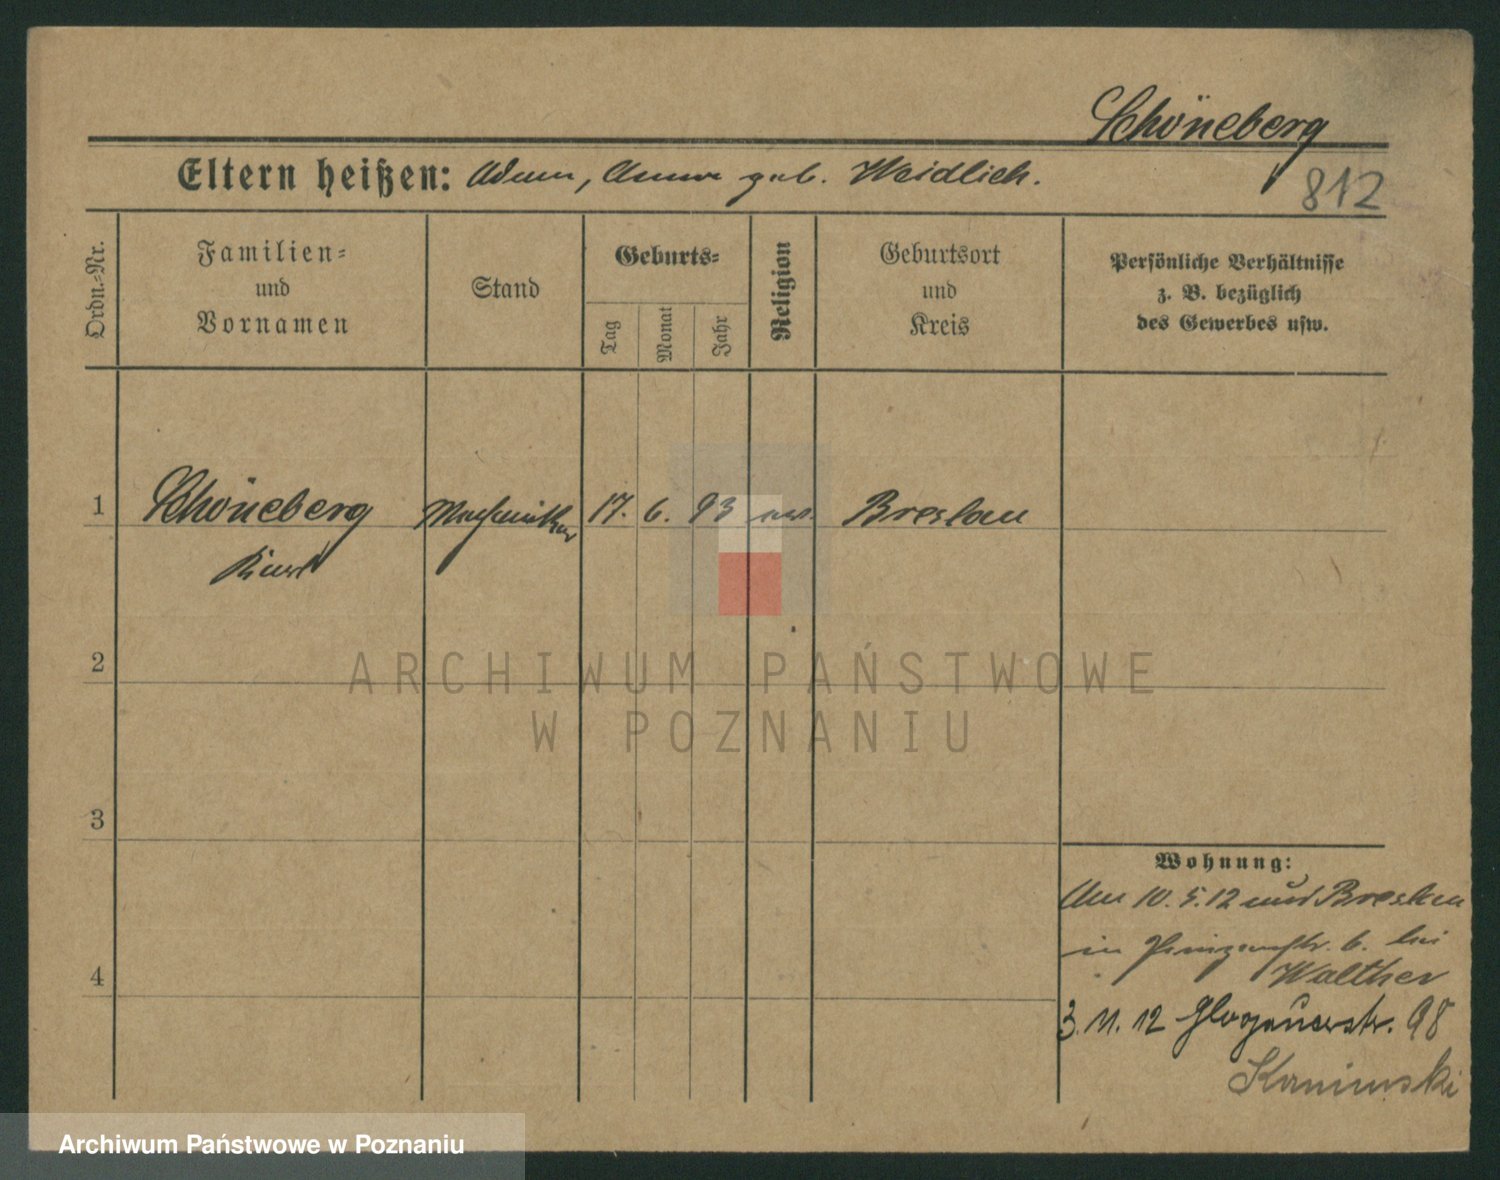 Schöneberg
Eltern heißen: Adam, Anna geb. Weidlich.
812
Ordn.=Nr.
Familien=
und
Vornamen
Stand
Geburts=
Tag
Monat
Jahr
Religion
Geburtsort
und
Kreis
Persönliche Verhältnisse
z. B. bezüglich
des Gewerbes usw.
1 Schöneberg Mechaniker 17. 6. 93 Breslau
Kurt
2
3
4
Wohnung:
Am 10. 5. 12 Breslau
in Prinzenstr. 6. bei
Walther
3. 11. 12 Glogauerstr. 98
Kaminski
ARCHIWUM PAŃSTWOWE
W POZNANIU
Archiwum Państwowe w Poznaniu